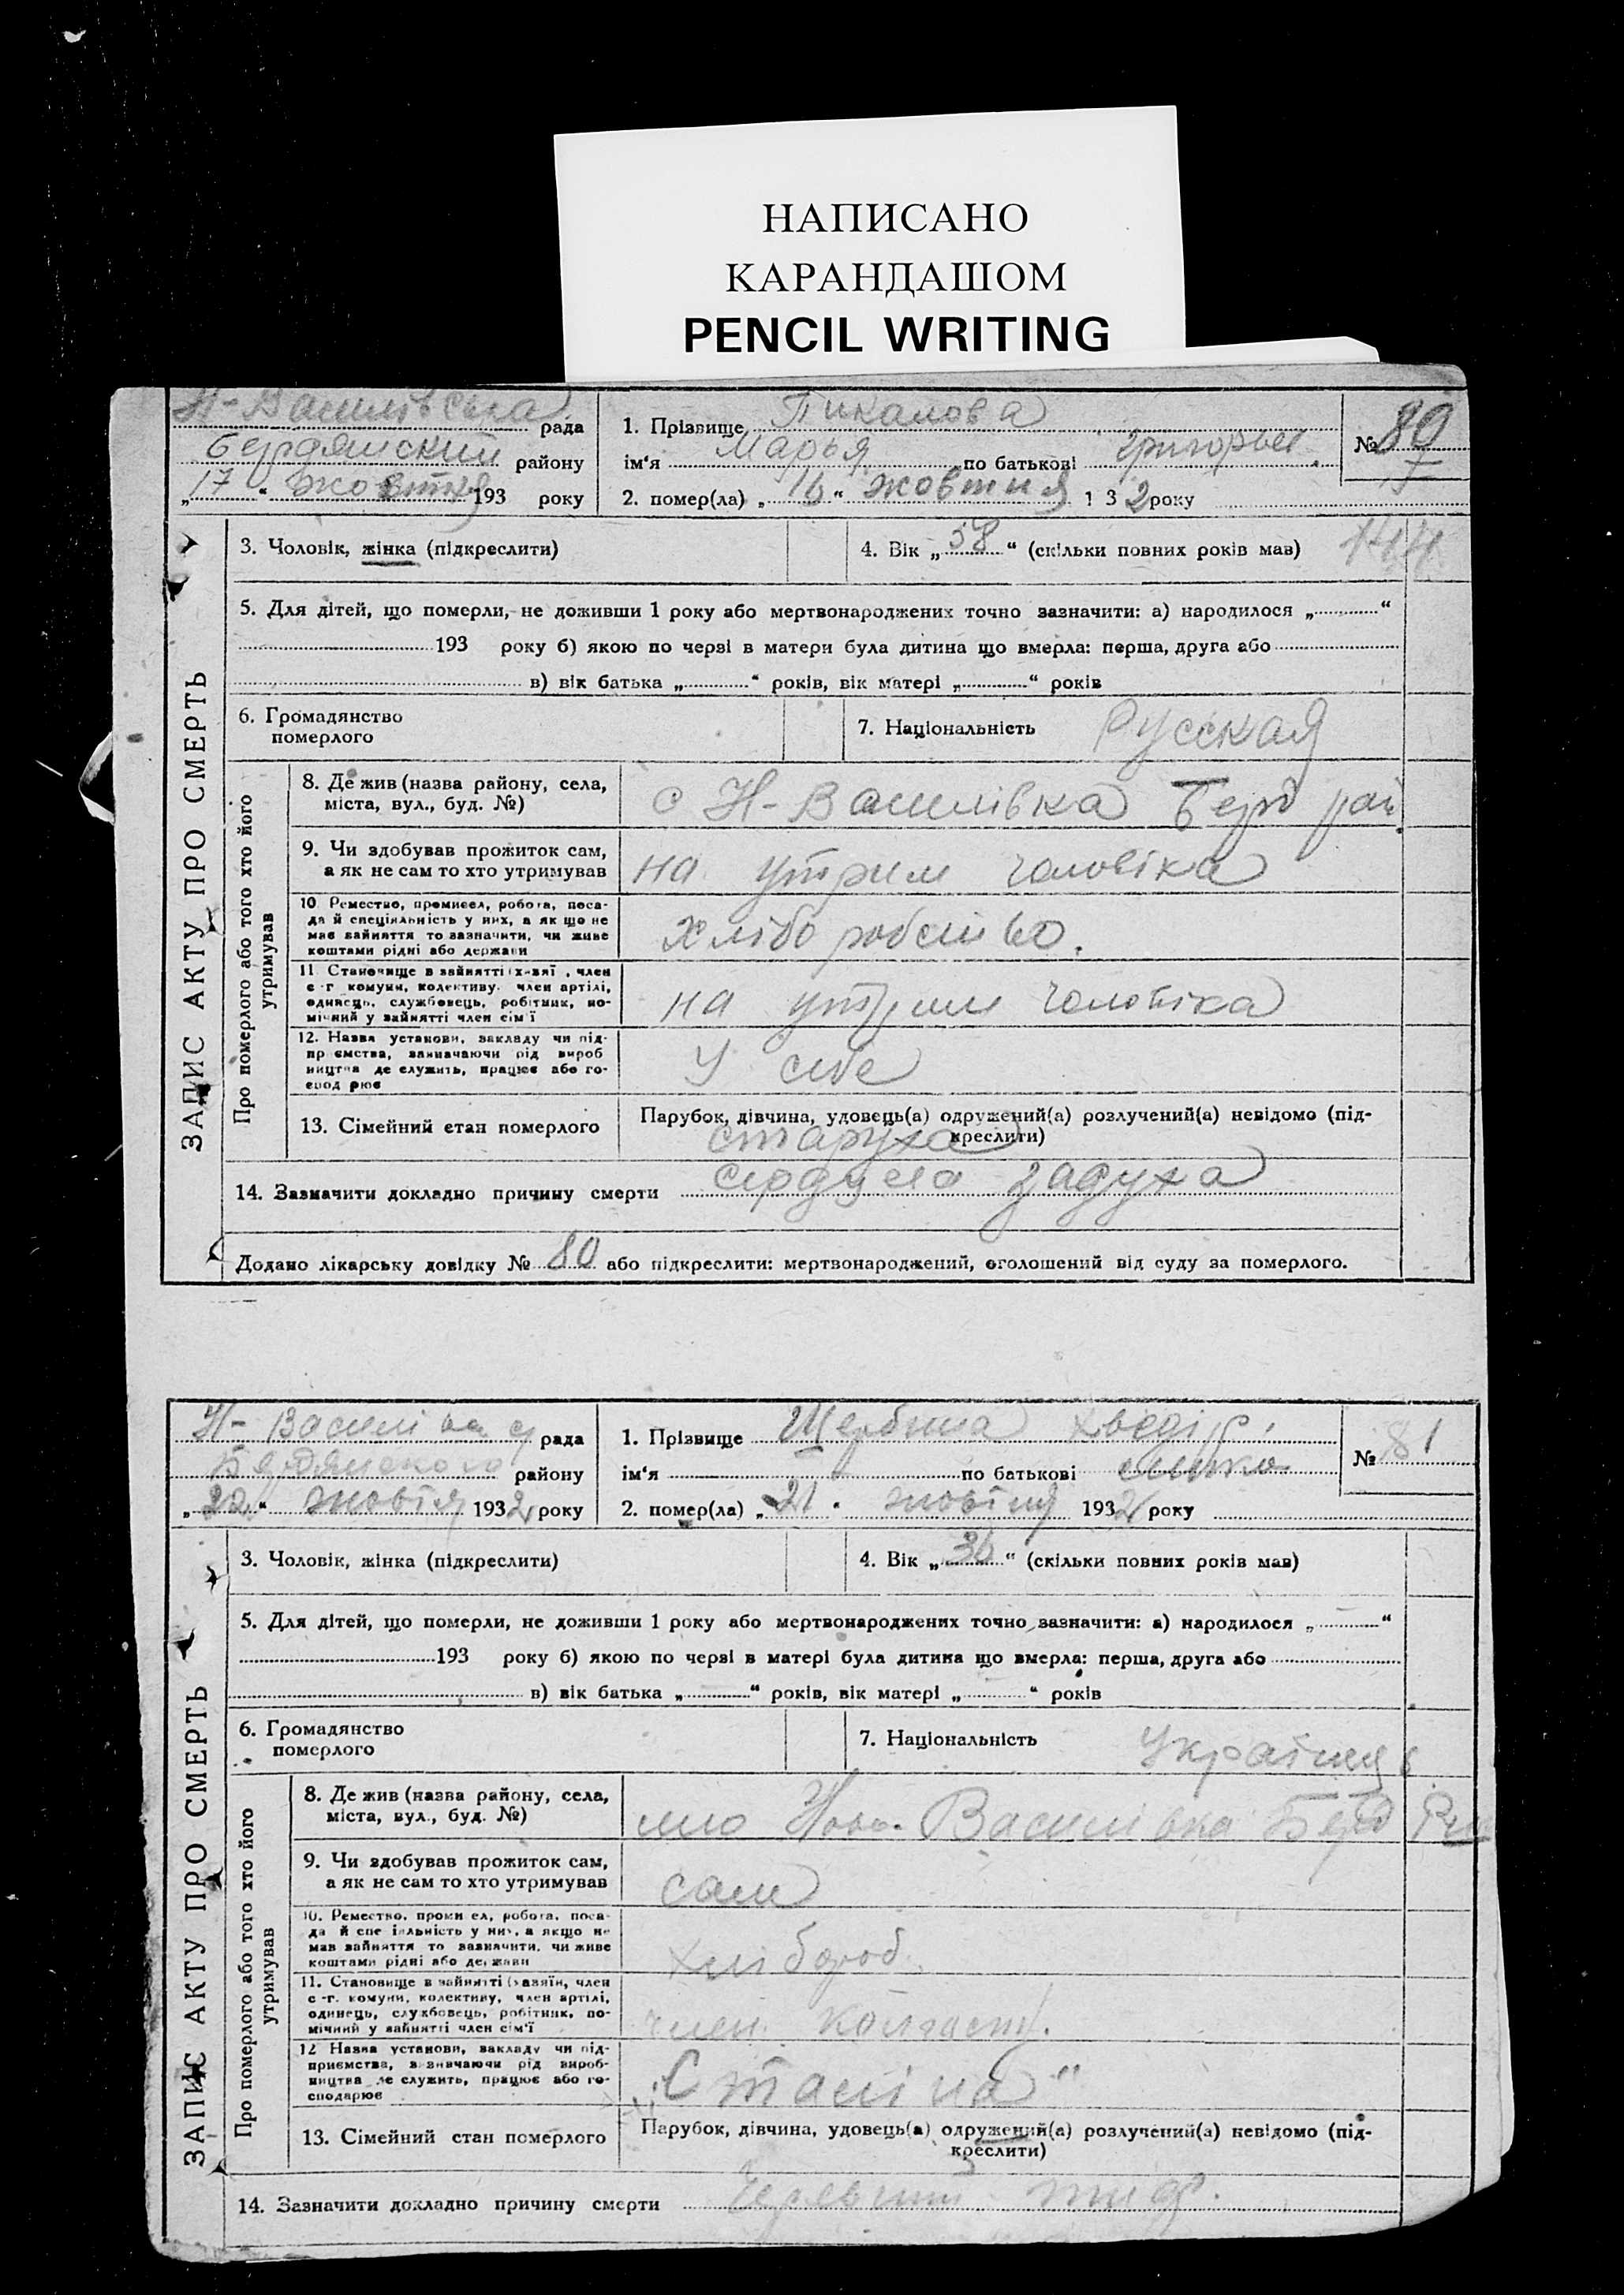 НАПИСАНО
КАРАНДАШОМ
PENCIL WRITING
Н-Василівська рада
Бердянский району
„17“ жовтня 193 року
1. Прізвище Пикалова
ім‘я Марья по батькові Григорьев.
2. помер(ла) „16“ жовтня 1 3 2 року
№ 80
144
3. Чоловік, жінка (підкреслити)
4. Вік „58“ (скільки повних років мав)
5. Для дітей, що померли, не доживши 1 року або мертвонароджених точно зазначити: а) народилося „ “
193 року б) якою по черзі в матери була дитина що вмерла: перша, друга або
в) вік батька „ “ років, вік матері „ “ років
6. Громадянство
померлого
7. Національність Русская
ЗАПИС АКТУ ПРО СМЕРТЬ
Про померлого або того хто його
утримував
8. Де жив (назва району, села,
міста, вул., буд. №)
с Н-Василівка Берд рай.
9. Чи здобував прожиток сам,
а як не сам то хто утримував
на утрим чоловіка
10. Ремество, промисел, робота, поса-
да й спеціяльність у них, а як що не
мав зайняття то зазначити, чи живе
коштами рідні або держави
Хліборобство.
11. Становище в зайнятті (х-зяї , член
с-г комуни, колективу. член артілі,
одинець, службовець, робітник, по-
мічний у зайнятті член сім‘ї
на утрим чоловіка
12. Назва установи, закладу чи під-
пр ємства, зазначаючи рід вироб
ництва де служить, працює або го-
спод рює
У себе
13. Сімейний стан померлого
Парубок, дівчина, удовець(а) одружений(а) розлучений(а) невідомо (під-
креслити)
старуха
14. Зазначити докладно причину смерти задуха
Додано лікарську довідку № 80 або підкреслити: мертвонароджений, оголошений від суду за померлого.
Н-Василівка рада
Бердянского району
„22“ 1932 року
1. Прізвище Щербина Хведір
ім‘я по батькові
2. помер(ла) „21“ 1932 року
№ 81
3. Чоловік, жінка (підкреслити)
4. Вік „36“ (скільки повних років мав)
5. Для дітей, що померли, не доживши 1 року або мертвонароджених точно зазначити: а) народилося „ “
193 року б) якою по черзі в матері була дитина що вмерла: перша, друга або
в) вік батька „ “ років, вік матері „ “ років
6. Громадянство
померлого
7. Національність
ЗАПИС АКТУ ПРО СМЕРТЬ
Про померлого або того хто його
утримував
8. Де жив (назва району, села,
міста, вул., буд. №)
Ново-Василівка Берд
9. Чи здобував прожиток сам,
а як не сам то хто утримував
сам
10. Ремество, промисел, робота, поса-
да й спеціяльність у них, а якщо не
мав зайняття то зазначити, чи живе
коштами рідні або держави
хлібороб.
11. Становище в зайнятті (хазяїн, член
с-г. комуни, колективу, член артілі,
одинець, службовець, робітник, по-
мічний у зайнятті член сім‘ї
член колгоспу.
12 Назва установи, закладу чи під-
приємства, зазначаючи рід вироб-
ництва де служить, працює або го-
сподарює
„Сталіна“
13. Сімейний стан померлого
Парубок, дівчина, удовець(а) одружений(а) розлучений(а) невідомо (під-
креслити)
14. Зазначити докладно причину смерти Черевний тиф.